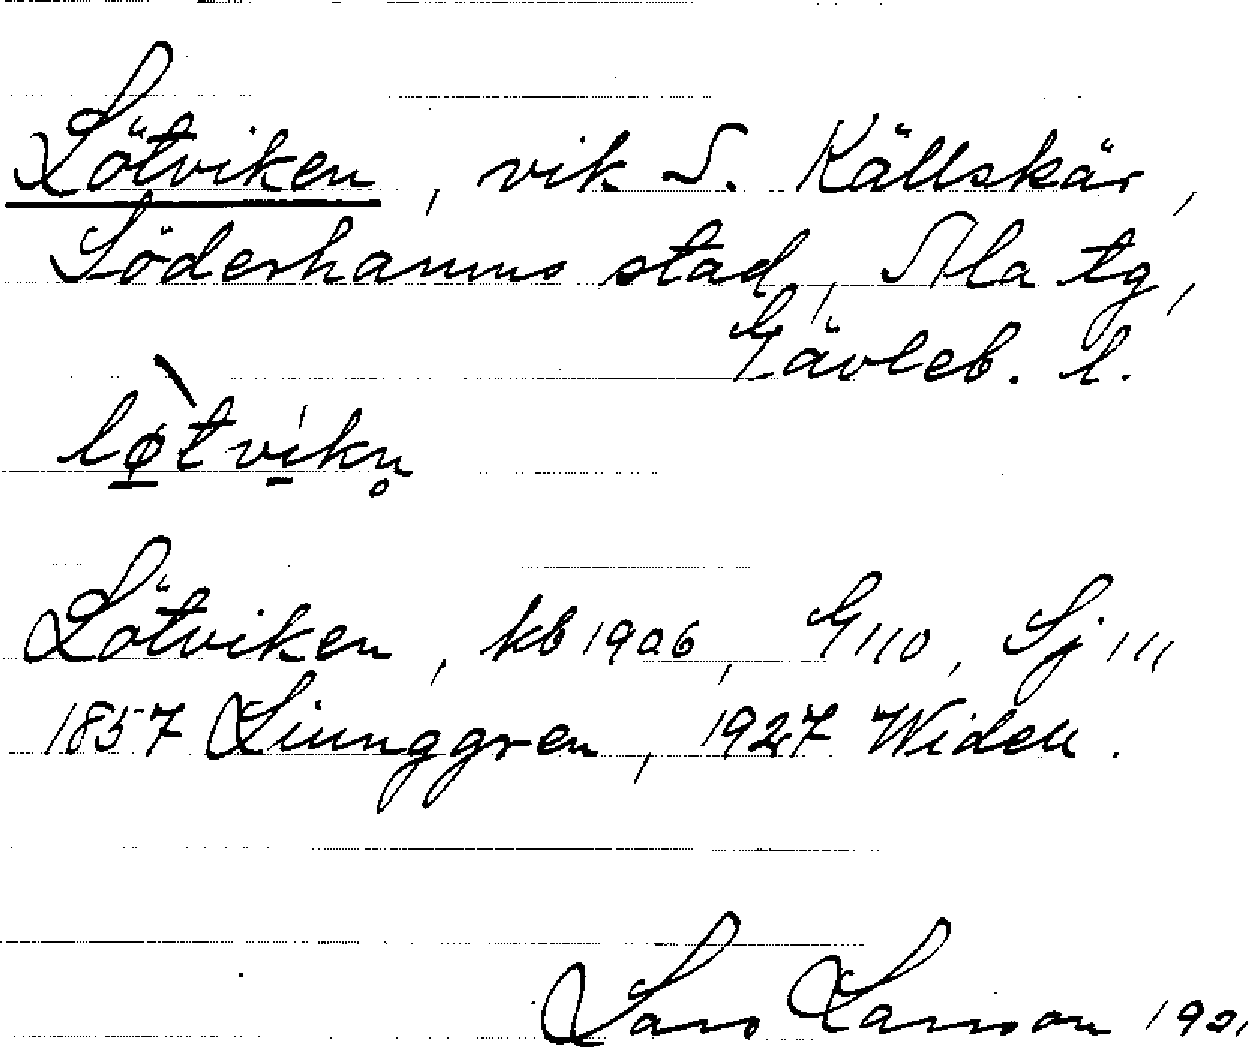 Lötviken, vik S. Källskär,
Söderhamns stad, Ala tg,
Gävleb. l.
lø̀tvikn̥
Lötviken, kb 1906, G 110, Sj 111
1857 Ljunggren, 1927 Widell.
Lars Larsson